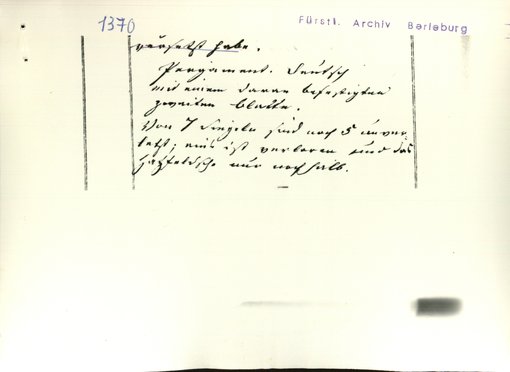 1370
Fürstl. Archiv Berleburg
versetzt habe.
Pergament. Deutsch
mit einem daran befestigten
zweiten Blatte.
Von 7 Siegeln sind noch 5 unver-
letzt; eins ist verloren und das
Hatzfeldsche nur noch halb.